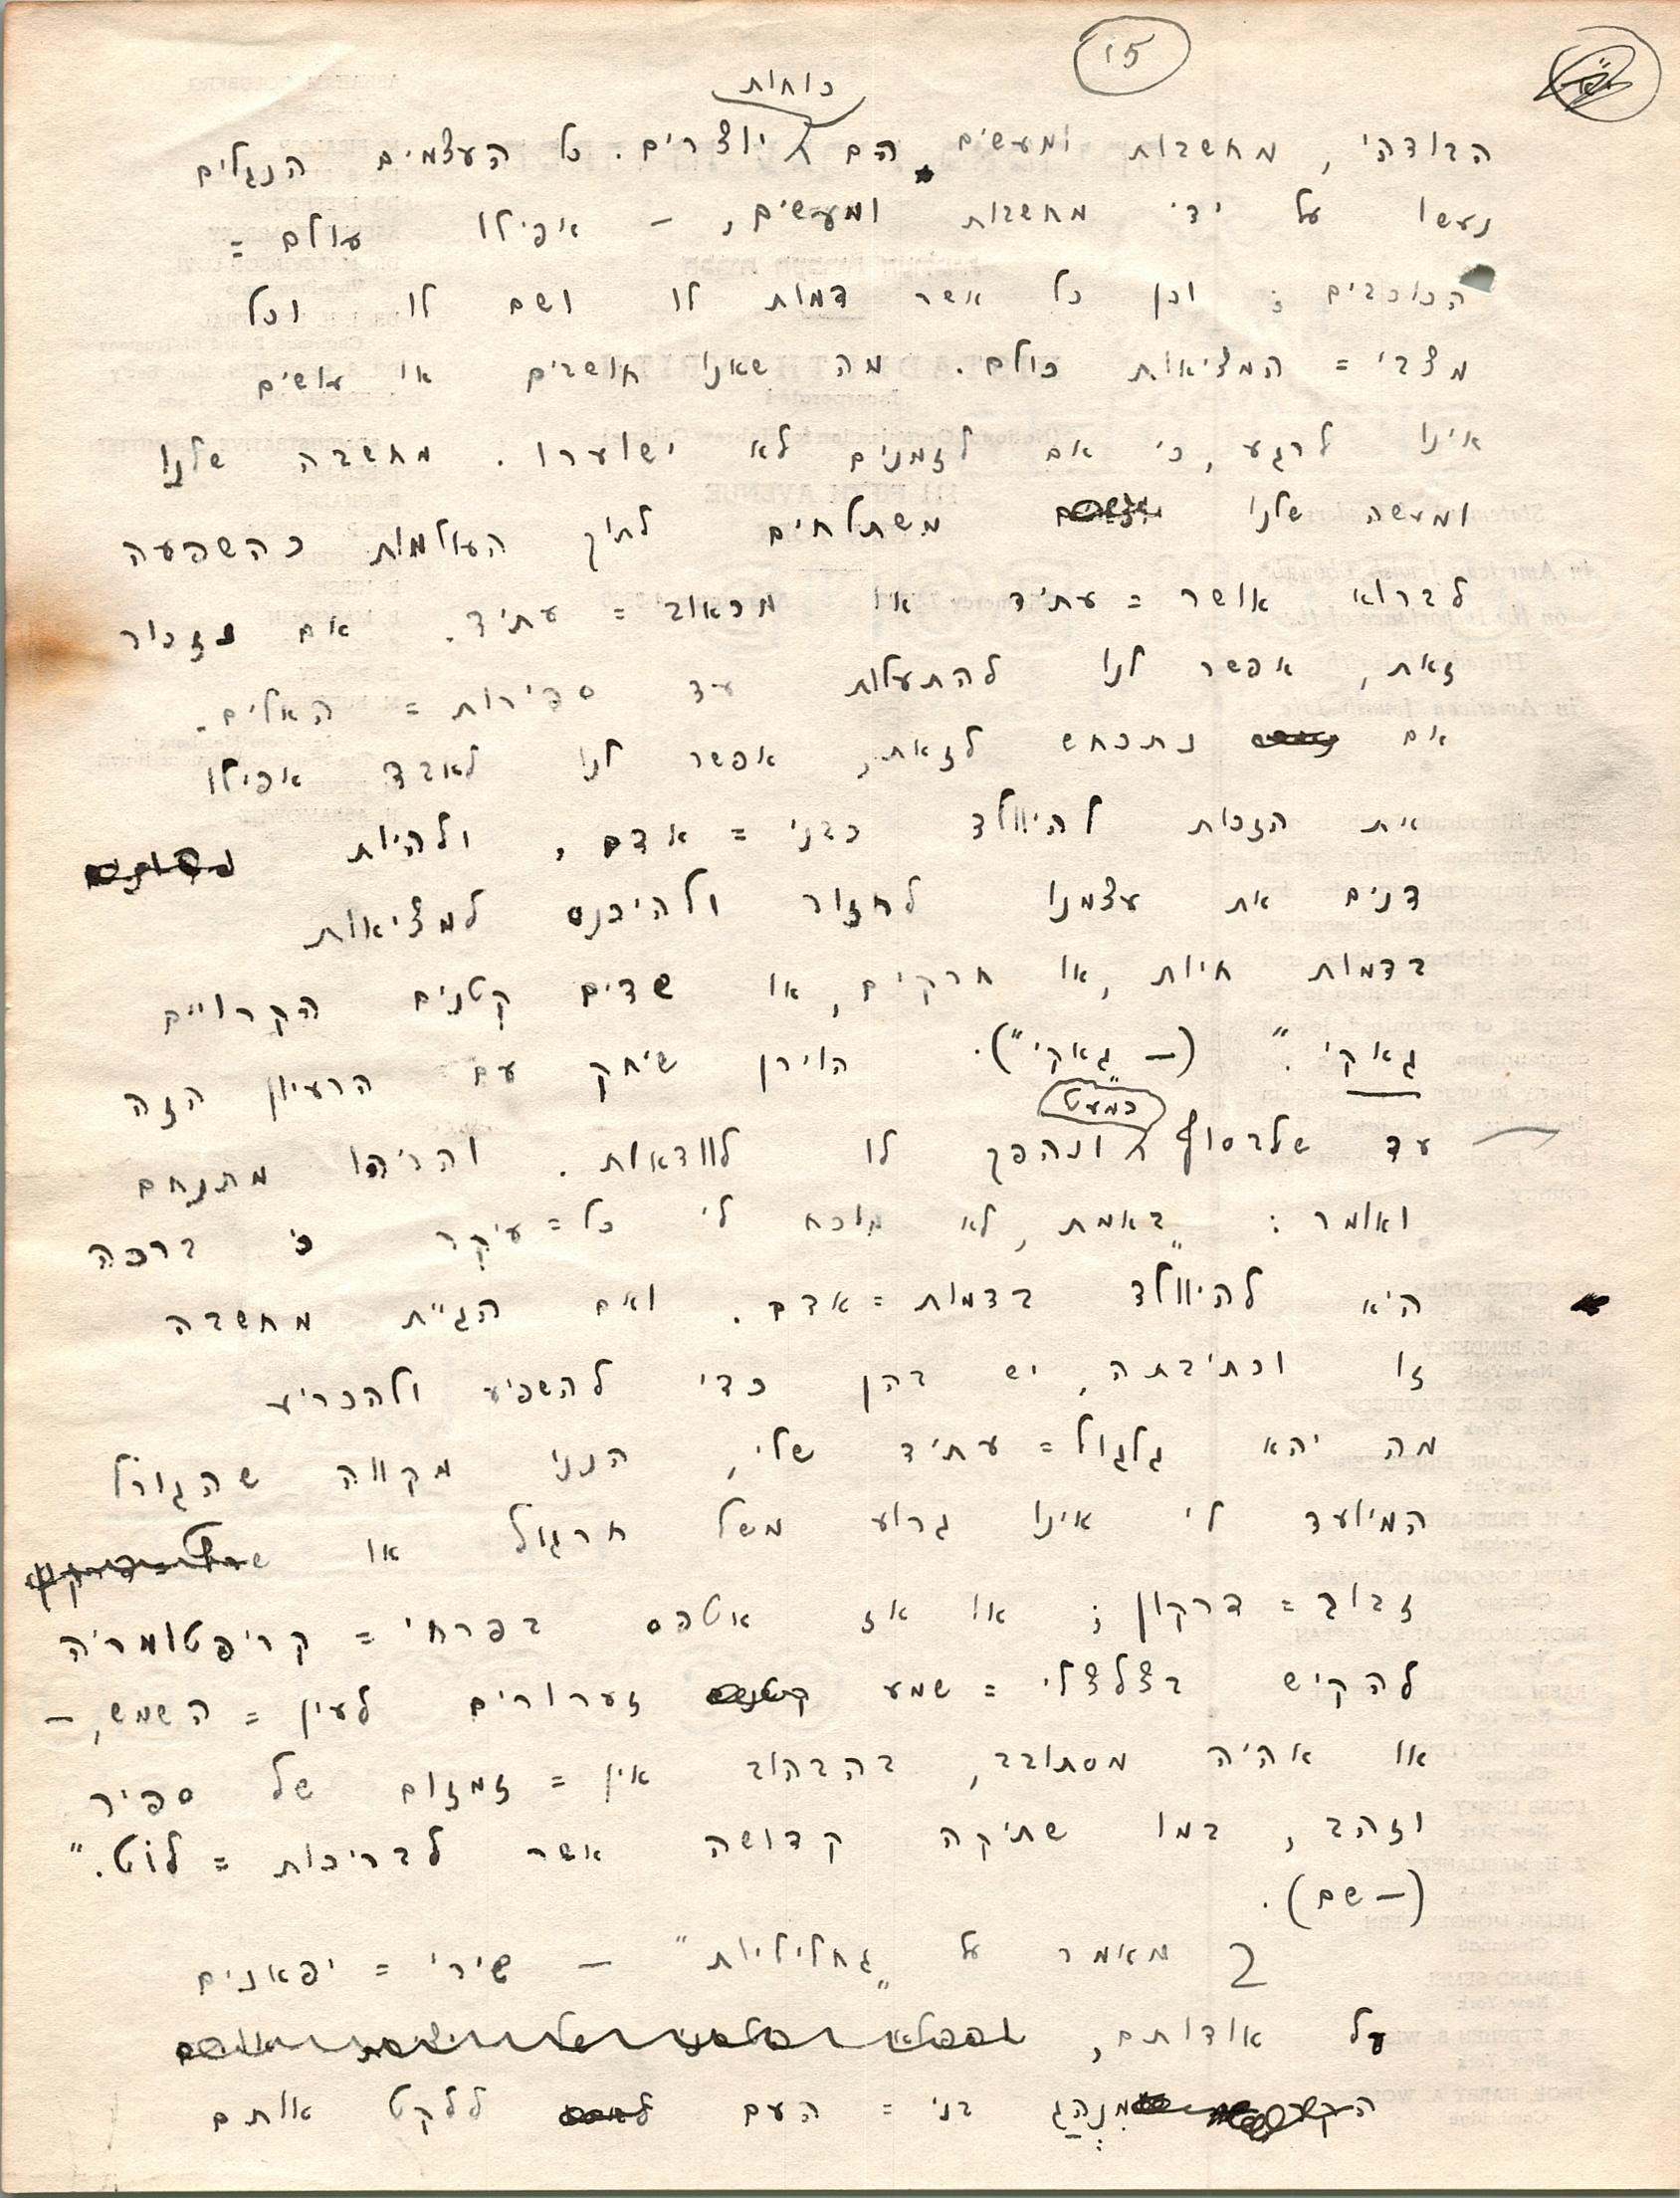 15
כוחות
הבודהי, מחשבות ומעשים הם יוצרים. כל העצמים הנגלים
נעשו על ידי מחשבות ומעשים, — אפילו עולם =
הכוכבים ; וכן כל אשר דמות לו ושם לו וכל
מצבי = המציאות כולם. מה שאנו חושבים או עושים
אינו לרגע, כי אם לזמנים לא ישוערו. מחשבה שלנו
ומעשה שלנו משתלחים לתוך העולמות כהשפעה
לברוא אושר = עתיד או מכאוב = עתיד. אם נזכור
זאת, אפשר לנו להתעלות עד ספירות = האלים.
אם נתכחש לזאת, אפשר לנו לאבד אפילו
את הזכות להיוולד כבני = אדם, ולהיות
דנים את עצמנו לחזור ולהיכנס למציאות
בדמות חיות, או חרקים, או שדים קטנים הקרויים
גאקי." (— „גאקי"). הוירן שיחק עם הרעיון הזה
כמעט
עד שלבסוף ונהפך לו לוודאות. והריהו מתנחם
ואומר : „באמת, לא מוכח לי כל = עיקר כי ברכה
היא להיוולד בדמות = אדם. ואם הגיית מחשבה
זו וכתיבתה, יש בהן כדי להשפיע ולהכריע
מה יהא גלגול = עתיד שלי, הנני מקווה שהגורל
המיועד לי אינו גרוע משל חרגול או
זבוב = דרקון ; או אז אטפס בפרחי = קריפטומריה
להקיש בצלצלי = שמע זערורים לעין = השמש, —
או אהיה מסתובב, בהבהוב אין = זמזום של ספיר
וזהב, במו שתיקה קדושה אשר לבריכות = לוֹט."
(— שם).
מאמר על „גחליליות" — שירי = יפאנים
על אודותם,
מִנְהָג בני = העם ללקט אותם